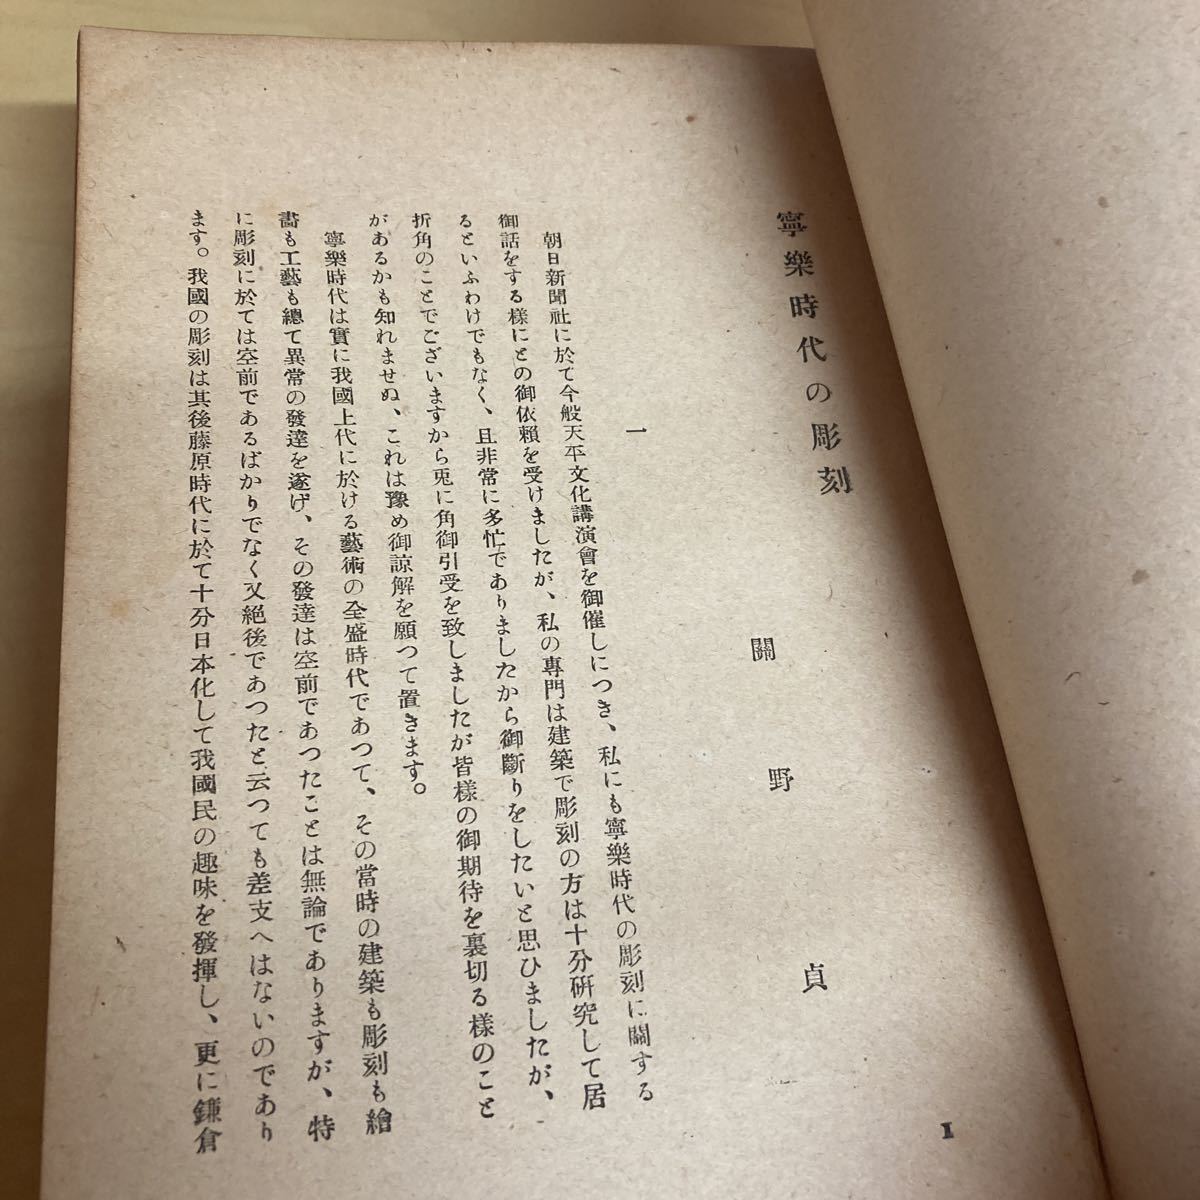 寧樂時代の彫刻
關野貞
一
朝日新聞社に於て今般天平文化講演會を御催しにつき、私にも寧樂時代の彫刻に關する
御話をする樣にとの御依賴を受けましたが、私の專門は建築で彫刻の方は十分硏究して居
るといふわけでもなく、且非常に多忙でありましたから御斷りをしたいと思ひましたが、
折角のことでございますから兎に角御引受を致しましたが皆樣の御期待を裏切る樣のこと
があるかも知れませぬ、これは豫め御諒解を願つて置きます。
寧樂時代は實に我國上代に於ける藝術の全盛時代であつて、その當時の建築も彫刻も繪
畵も工藝も總て異常の發達を遂げ、その發達は空前であつたことは無論でありますが、特
に彫刻に於ては空前であるばかりでなく又絕後であつたと云つても差支へはないのであり
ます。我國の彫刻は其後藤原時代に於て十分日本化して我國民の趣味を發揮し、更に鎌倉
1